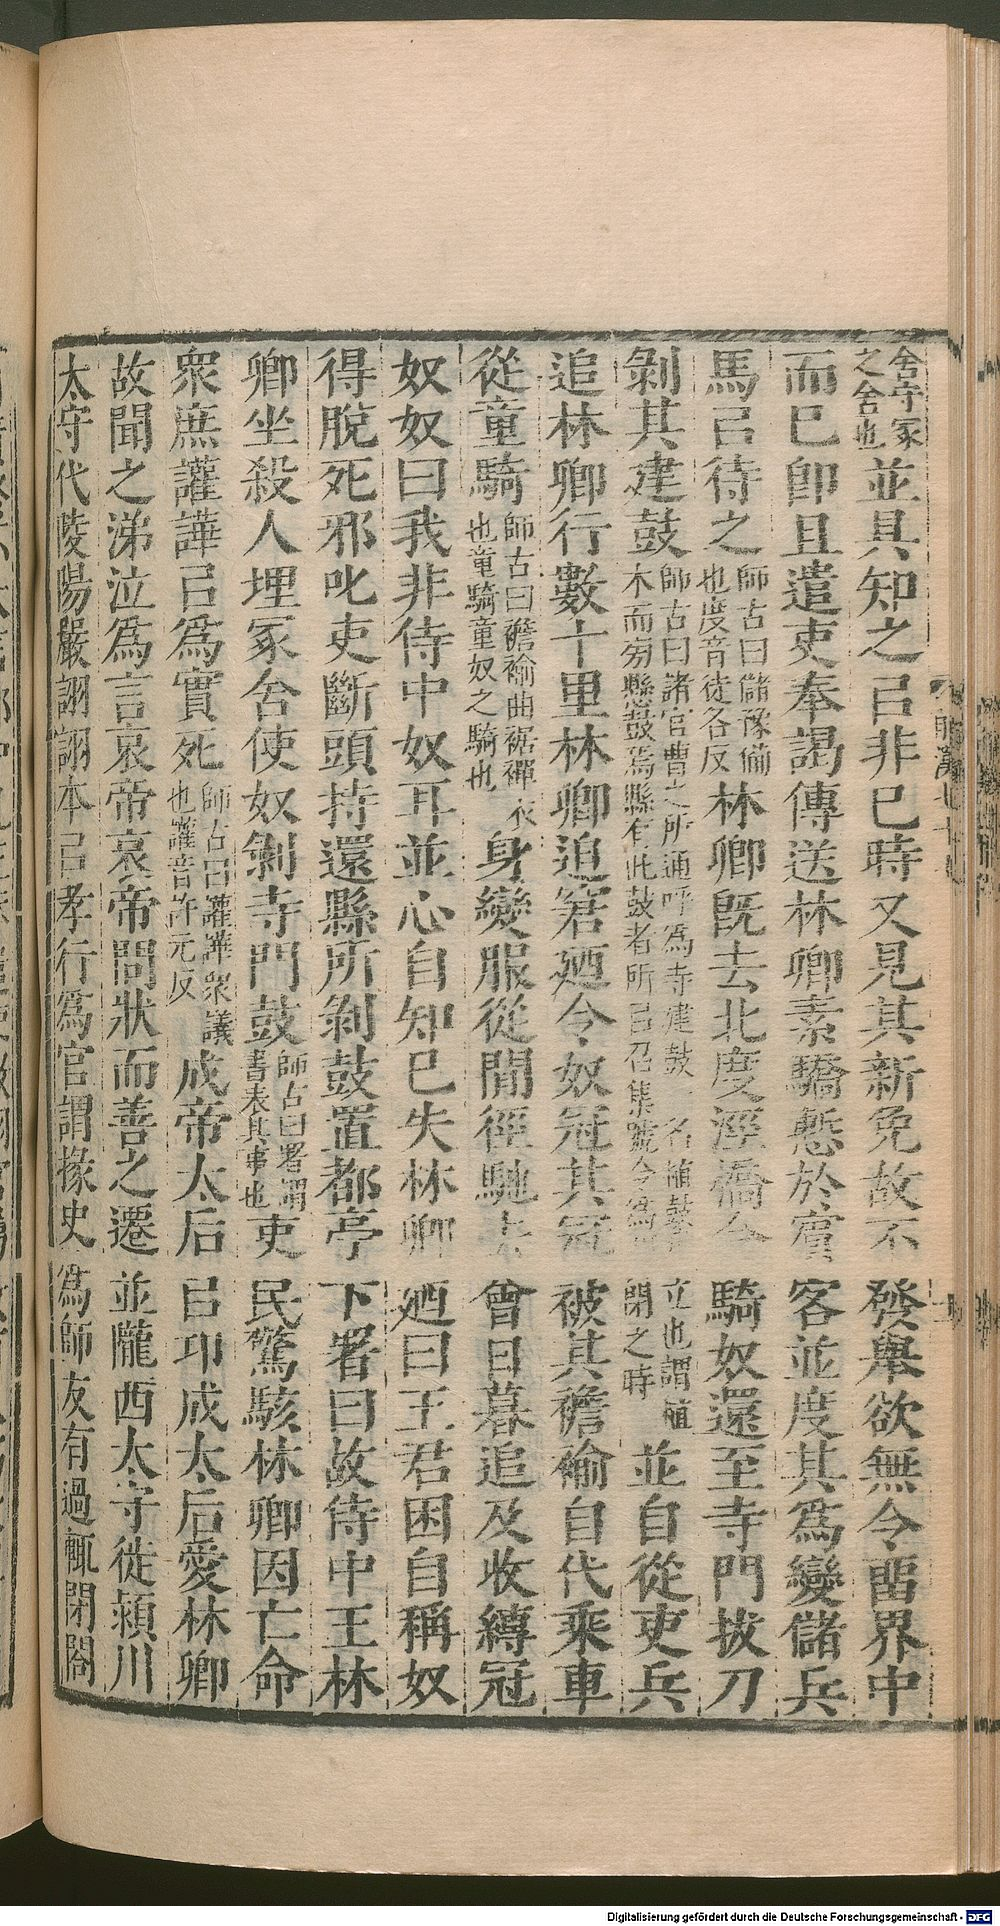 舍守冢
之舍也
並具知之㠯非已時又見其新免故不發舉欲無令留界中
而巳卽且遣吏奉謁傳送林卿素驕慙於賓客並度其爲變儲兵
馬㠯待之
師古曰儲豫備
也度音徒各反
林卿旣去北度涇橋令騎奴還至寺門拔刀
剝其建鼓
師古曰諸官曹之所通呼爲寺建鼓一名植鼓建立也謂植
木而旁縣鼓焉縣有此鼓者所㠯召集號令爲開閉之時
並自從吏兵
追林卿行數十里林卿迫窘廼令奴冠其冠被其襜褕自代乘車
從童騎
師古曰襜褕曲裾襌衣
也童騎童奴之騎也
身變服從閒徑馳去會日暮追及收縛冠
奴奴曰我非侍中奴耳並心自知已失林卿廼曰王君困自稱奴
得脫死邪叱吏斷頭持還縣所剝鼓置都亭下署曰故侍中王林
卿坐殺人埋冢舍使奴剝寺門鼓
師古曰署謂
書表其事也
吏民驚駭林卿因亡命
衆庶讙譁㠯爲實死
師古曰讙譁衆議
也讙音許元反
成帝太后㠯卭成太后愛林卿
故聞之涕泣爲言哀帝哀帝問狀而善之遷並隴西太守徙潁川
太守代陵陽嚴詡詡本㠯孝行爲官謂掾史爲師友有過輒閉閤
Digitalisierung gefördert durch die Deutsche Forschungsgemeinschaft - DFG